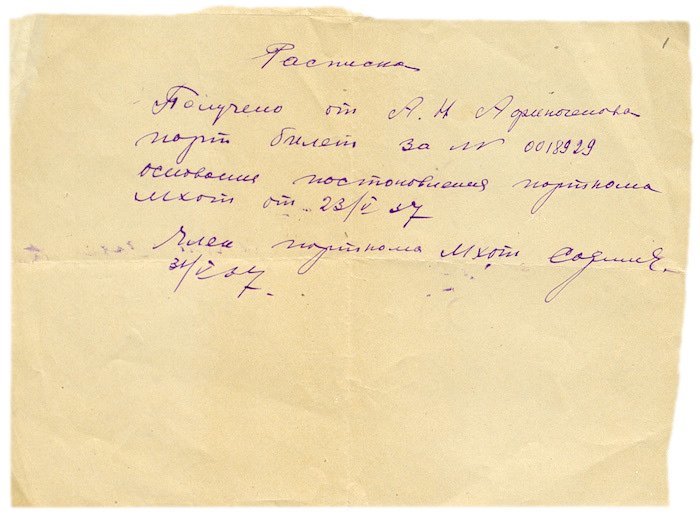 1
Расписка
Получено от А. Н Афиногенова
парт билет за № 0018929
основания постоновления порткома
Мхот от 23/V 37
Член порткома Мхот
31/V 37.